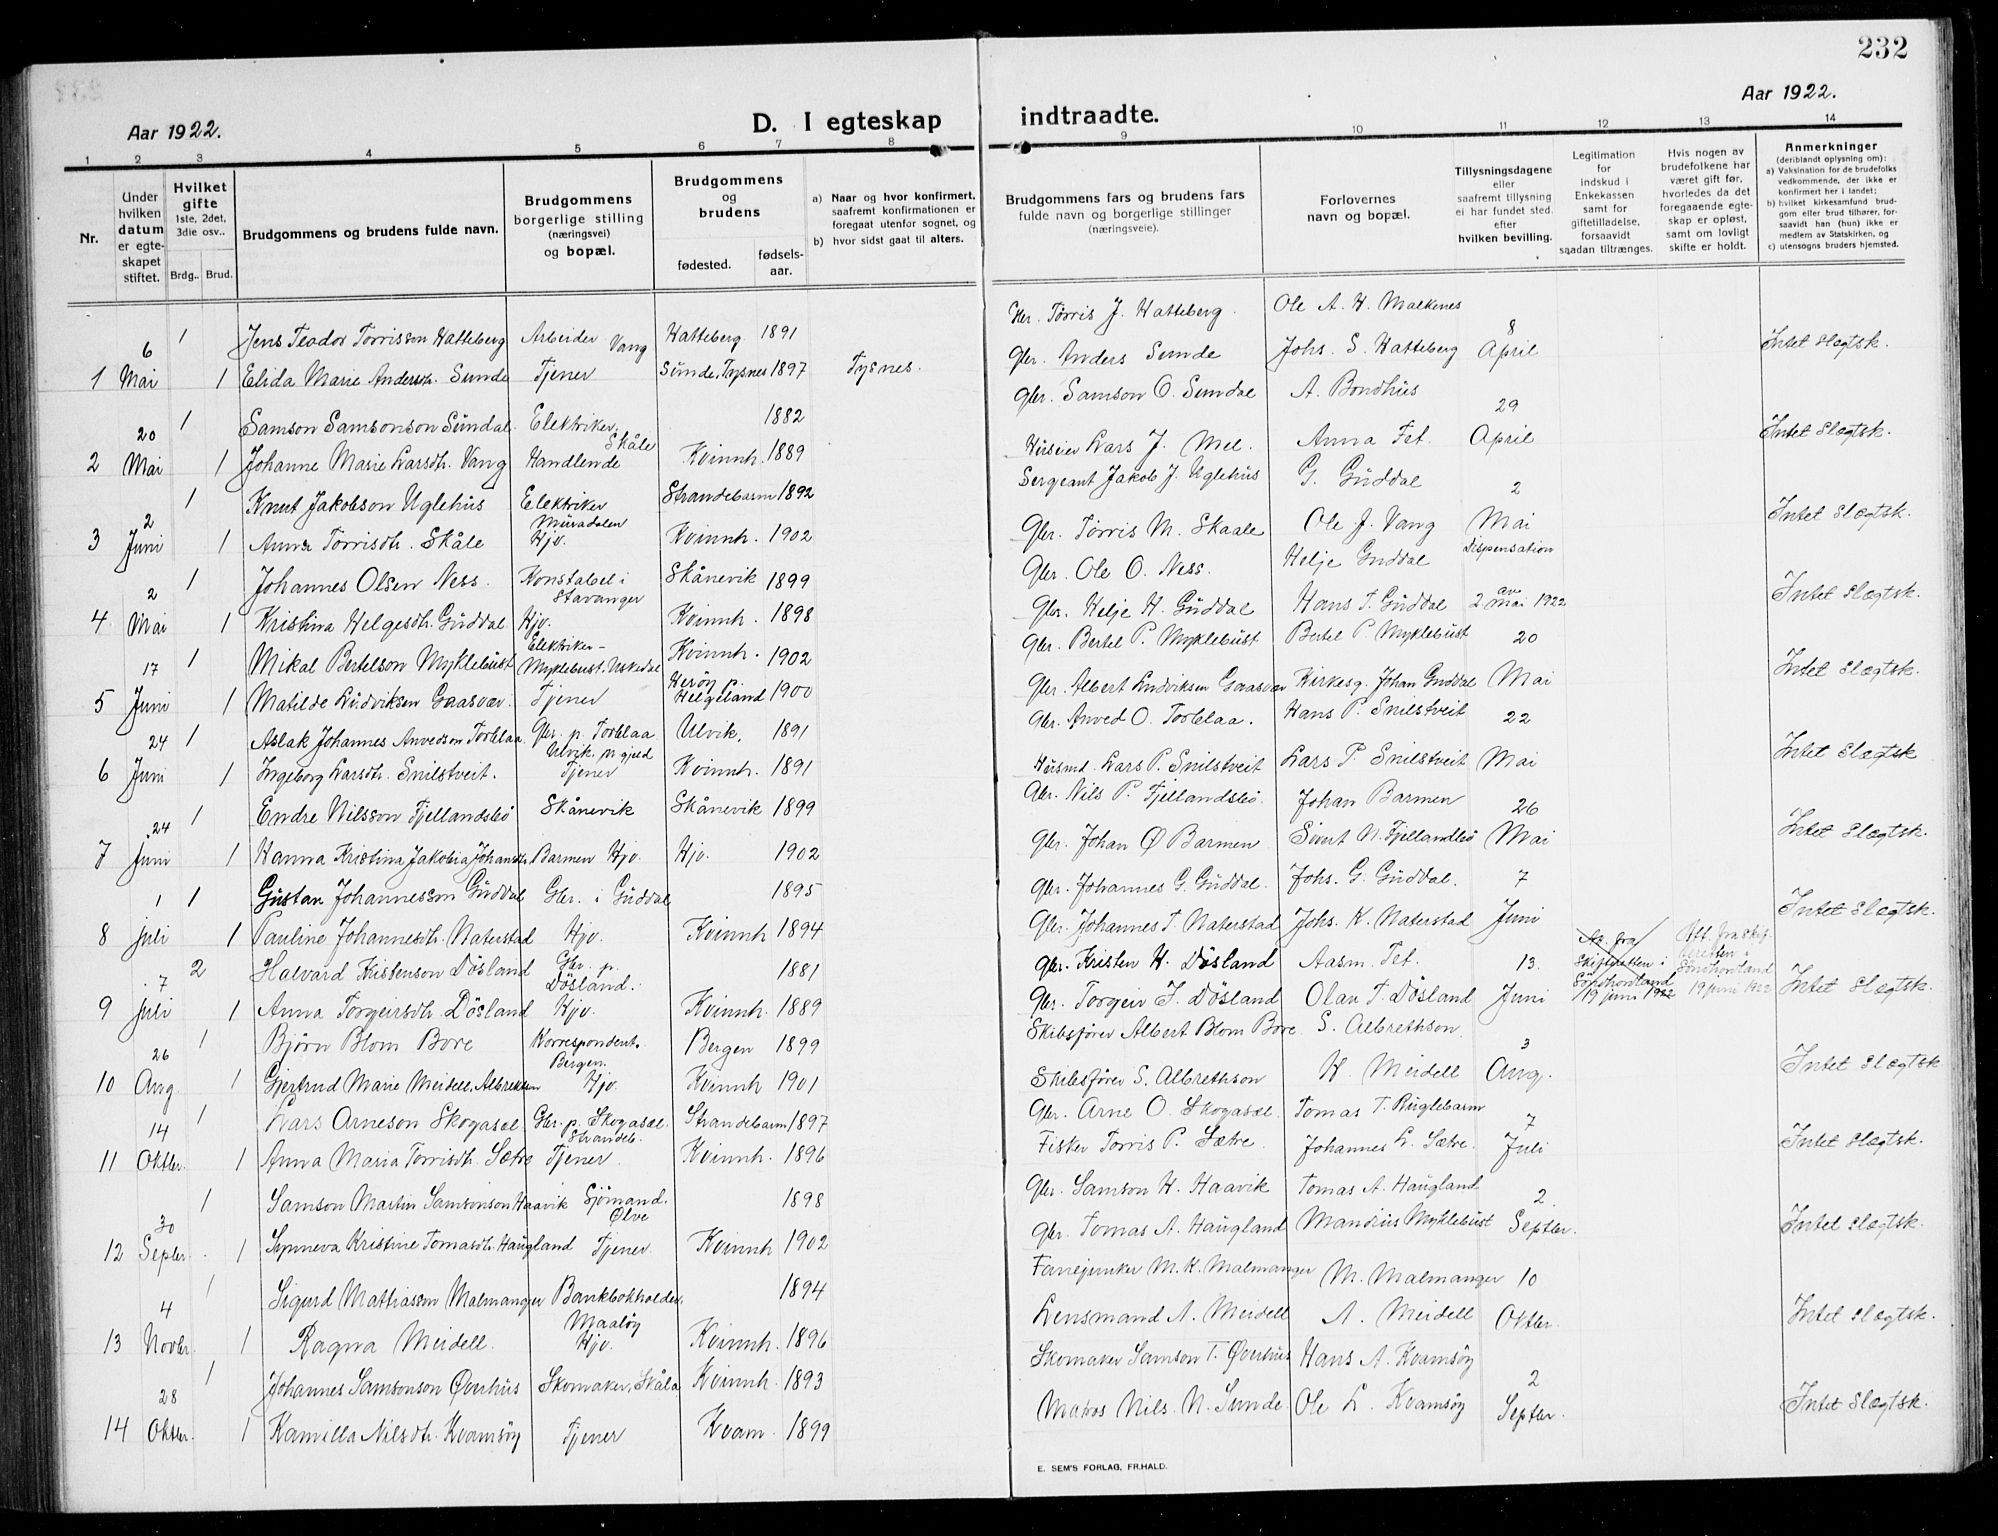 232
Aar 1922. D. I egteskap indtraadte. Aar 1922.
1 2 3 4 5 6 7 8 9 10 11 12 13 14
Nr.
Under hvilken datum er egteskapet stiftet.
Hvilket gifte 1ste, 2det, 3die osv.. Brdg.. Brud.
Brudgommens og brudens fulde navn.
Brudgommens borgerlige stilling (næringsvei) og bopæl.
Brudgommens og brudens fødested. fødselsaar.
a) Naar og hvor konfirmert, saafremt konfirmationen er foregaat utenfor sognet, og
b) hvor sidst gaat til alters.
Brudgommens fars og brudens fars fulde navn og borgerlige stillinger (næringsveie).
Forlovernes navn og bopæl.
Tillysningsdagene eller saafremt tillysning ei har fundet sted. efter hvilken bevilling.
Legitimation for indskud i Enkekassen samt for giftetilladelse, forsaavidt saadan tiltrænges.
Hvis nogen av brudefolkene har været gift før, hvorledes da det foregaaende egteskap er opløst, samt om lovligt skifte er holdt.
Anmerkninger (deriblandt oplysning om): a) Vaksination for de brudefolks vedkommende, der ikke er konfirmert her i landet; b) hvilket kirkesamfund brudgom eller brud tilhører, forsaavidt han (hun) ikke er medlem av Statskirken, og c) utensogns bruders hjemsted.
6 1 Jens Teodor Torrisson Hatteberg Arbeider Vang Hatteberg 1891 Torris J. Hatteberg. Ole A. H. Malkenes 8
1 Mai 1 Elida Marie Andersdtr. Sunde Tjener Sunde, Tysnes 1897 Tysnes. Gbr. Anders Sunde Johs. S. Hatteberg April Intet Slægtsk.
20 1 Samson Samsonson Sundal Elektriker Skåle 1882 Gbr. Samson O. Sundal A. Bondhus 29
2 Mai 1 Johanne Marie Larsdtr. Vang Handlende Kvinnh. 1889 Huseier Lars J. Mel. Anna Fet. April Intet Slægtsk.
2 1 Knut Jakobson Uglehus Elektriker Muradalen Strandebarm 1892 Sergeant Jakob J. Uglehus G. Guddal 2
3 Juni 1 Anna Torrisdtr. Skåle Hjv. Kvinnh. 1902 Gbr. Torris M. Skaale Ole J. Vang Mai Intet Slægtsk.
2 1 Johannes Olsen Ness. Konstabel i Stavanger Skånevik 1899 Gbr. Ole O. Ness. Helje Guddal Dispensation
4 Mai 1 Kristina Helgesdtr. Guddal Hjv. Kvinnh. 1898 Gbr. Helje H. Guddal Hans T. Guddal av 2 Mai 1922 Intet Slægtsk.
17 1 Mikal Bertelson Myklebust Elektriker - Myklebust. Uskedal Kvinnh. 1902 Gbr. Bertel P. Myklebust Bertel P. Myklebust 20
5 Juni 1 Matilde Ludviksen Gaasvær. Tjener Herøy p. Helgeland 1900 Gbr. Albert Ludviksen Gaasvær Kirkesg. Johan Guddal Mai Intet Slægtsk.
24 1 Aslak Johannes Anvedson Torblaa. Gbr. p. Torblaa Ulvik. Ulvik, 1891 Gbr. Anved O. Torblaa. Hans P. Snilstveit 22
6 Juni 1 Ingeborg Larsdtr. Snilstveit. Tjener Kvinnh. 1891 Husmd. Lars P. Snilstveit Lars P. Snilstveit Mai Intet Slægtsk.
24 1 Endre Nilsson Fjellandsbø Skånevik Skånevik 1899 Gbr. Nils P. Fjellandsbø. Johan Barmen 26
7 Juni 1 Hanna Kristina Jakobia Johansdtr. Barmen Hjv. Hjv. 1902 Gbr. Johan Ø Barmen Sivert N. Fjellandbø Mai Intet Slægtsk.
1 1 Gustav Johannesson Guddal Gbr. i Guddal 1895 Gbr. Johannes G. Guddal. Johs. G. Guddal. 7
8 juli 1 Pauline Johannesdtr. Naterstad Hjv. Kvinnh 1894 Gbr. Johannes T. Naterstad Johs. K. Naterstad Juni Intet Slægtsk.
7 2 Halvard Kristenson Døsland Gbr. p. Døsland. 1881 Gbr. Kristen H. Døsland Aasm. Fet. 13. At. fra Skifteretten i Søndhordland 19 juni 1922 Att. fra Skifteretten i Søndhordland 19 juni 1922
9 juli 1 Anna Torgeirsdtr. Døsland Hjv. Kvinnh. 1889 Gbr. Torgeir J. Døsland Olav T. Døsland Juni Intet Slægtsk.
26 1 Bjørn Blom Bore Korrespondent. Bergen. Bergen 1899 Skibsfører Albert Blom Bore S. Albrethson 3
10 Aug 1 Gjertrud Marie Meidell Albrektsen Hjv. Kvinnh 1901 Skibsfører S. Albrethson H. Meidell Aug. Intet Slægtsk.
14 1 Lars Arneson Skogasæl Gbr. p. Skogasæl. Strandeb. Strandebarm 1897 Gbr. Arne O. Skogasæl Tomas T. Ruglebarm 7
11 Oktbr. 1 Anna Maria Torrisdtr. Sætre Tjener. Kvinnh. 1896 Fisker Torris P. Sætre. Johannes L. Sætre. Juli Intet Slægtsk.
30 1 Samson Martin Samsonson Haavik Sjømand. Ølve 1898 Gbr. Samson H. Haavik Tomas A. Haugland 2
12 Septbr. 1 Synneva Kristine Tomasdtr. Haugland Tjener. Kvinnh 1902 Gbr. Tomas A. Haugland Mandius Myklebust Septbr. Intet Slægtsk.
4 1 Sigurd Mathiasson Malmanger Bankbokholder, Maaløy 1894 Fanejunker M. K. Malmanger M. Malmanger 10
13 Novbr. 1 Ragna Meidell. Hjv. Kvinnh. 1896 Lensmand A. Meidell A. Meidell Oktbr. Intet Slægtsk.
28 1 Johannes Samsonson Øvrhus Skomaker, Skåla Kvinnh. 1893 Skomaker Samson T. Øvrhus Hans A. Kvamsøy 2
14 Oktbr. 1 Kamilla Nilsdtr. Kvamsøy Tjener Kvam. 1899 Matros Nils N. Sunde. Ole L. Kvamsøy Septbr. Intet Slægtsk.
E. SEM'S FORLAG, FR.HALD.